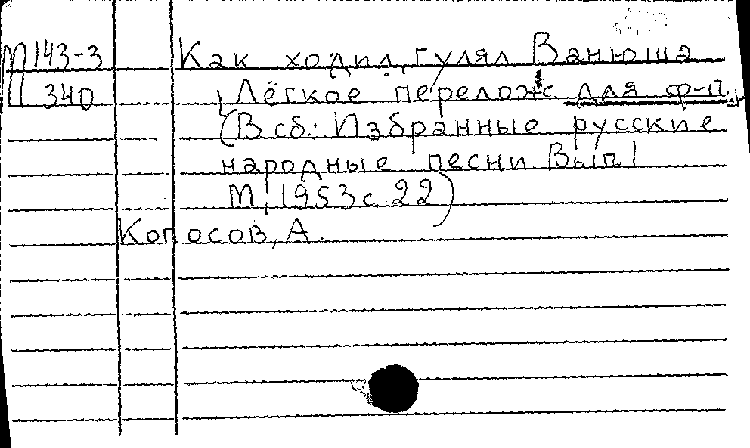 М143-3 Как ходил, гулял Ванюша
П 340 Лёгкое перелож для ф-п.
(В сб.: Избранные русские
народные песни. Вып 1
М, 1953 с 22)
Колосов, А.